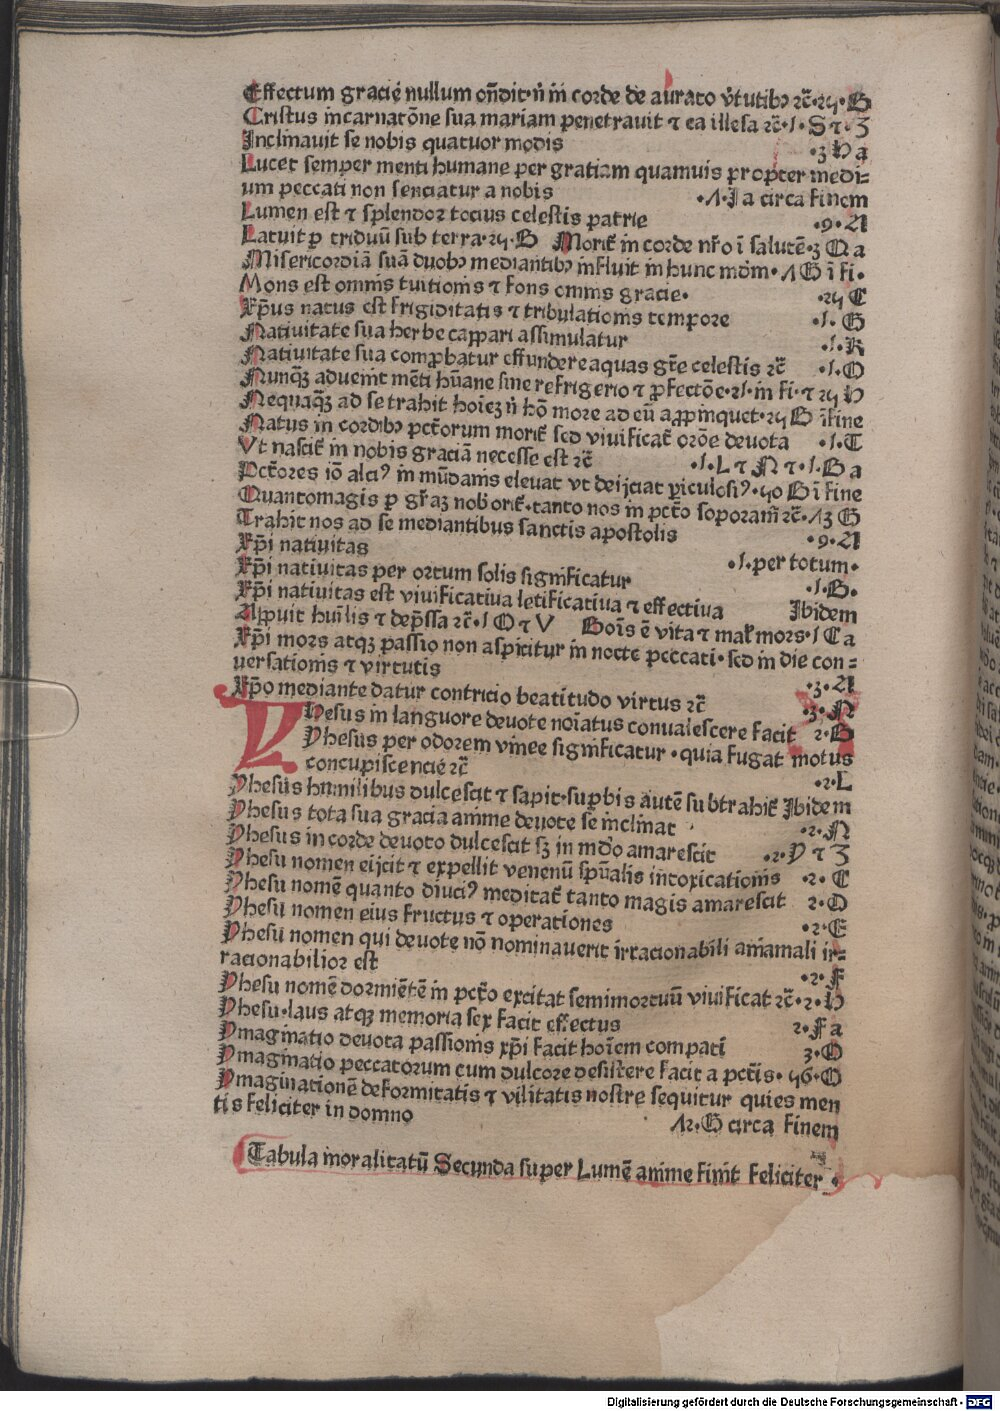 Effectum gracie nullum oñdit·ñ in corde de aurato v̓tutibꝫ ⁊c̃·25·B
Cristus incarnatōne sua mariam penetrauit ⁊ ea illesa ⁊c̃·1·S ⁊·Z
Inclinauit se nobis quatuor modis ·3 H a
Lucet semper menti humane per gratiam quamuis propter medi=
um peccati non senciatur a nobis ·1·I a circa finem
Lumen est ⁊ splendor tocius celestis patrie ·9·A
Latuit ꝑ triduū sub terra·25·B Morit᷑ in corde nr̄o ī salutē·3 Q a
Misericordiā suā duobꝫ mediantibꝫ influit in hunc mdm̄·1 G ī fi·
Mons est omnis tuitionis ⁊ fons omnis gracie· ·25 C
Xp̄us natus est frigiditatis ⁊ tribulationis tempore ·1·G
Natiuitate sua herbe cappari assimulatur ·1·K
Natiuitate sua comꝓbatur effundere aquas gr̄e celestis ⁊c̃ ·1·O
Nunqꝫ aduenit mēti hūane sine refrigerio ⁊ ꝓfectōe·21·in fi·⁊ 25 H
Nequaqꝫ ad se trahit hoīeꝫ ñ hō more ad eū aꝓpinquet·25 B ī fine
Natus in cordibꝫ pctōrum morit᷑ sed viuificat᷑ orōe deuota ·1·T
Vt nascit᷑ in nobis graciā necesse est ⁊c̃ ·1·L ⁊ N ⁊·1·B a
Pctōres iō alciꝰ in mūdanis eleuat vt deijciat ꝑiculosiꝰ·50 B ī fine
Quantomagis ꝑ gr̄aꝫ nob̓ orit᷑·tanto nos in pctō soporam̄ ⁊c̃·13 G
Trahit nos ad se mediantibus sanctis apostolis ·9·A
Xp̄i natiuitas ·1·per totum·
Xp̄i natiuitas per ortum solis significatur ·1·B·
Xp̄i natiuitas est viuificatiua letificatiua ⁊ effectiua Ibidem
Apꝑuit huīlis ⁊ dep̄ssa ⁊c̃·1 O ⁊ V Boīs ē vita ⁊ mal̓ mors·1 C a
Xp̄i mors atqꝫ passio non aspicitur in nocte peccati·sed in die con=
uersationis ⁊ virtutis ·3·A
Xp̄o mediante datur contricio beatitudo virtus ⁊c̃ ·3·N
Yhesus in languore deuote noīatus conualescere facit 2·B
Yhesus per odorem vinee significatur·quia fugat motus
concupiscencie ⁊c̃ ·2·L
Yhesus humilibus dulcescit ⁊ sapit·suꝑbis autē subtrahit᷑ Ibidem
Yhesus tota sua gracia anime deuote se inclinat ·2·N
Yhesus in corde deuoto dulcescit sꝫ in mdo amarescit ·2·Y ⁊ Z
Yhesu nomen eijcit ⁊ expellit venenū spūalis intoxicationis ·2·C
Yhesu nomē quanto diuciꝰ meditat᷑ tanto magis amarescit 2·D
Yhesu nomen eius fructus ⁊ operationes ·2·E
Yhesu nomen qui deuote nō nominauerit irracionabili animali ir=
racionabilior est ·2·F
Yhesu nomē dormiētē in pctō excitat semimortuū viuificat ⁊c̃·2·H
Yhesu·laus atqꝫ memoria sex facit effectus 2·F a
Ymaginatio deuota passionis xp̄i facit hoīem compati 3·O
Ymaginatio peccatorum cum dulcore desistere facit a pctīs·56·O
Ymaginationē deformitatis ⁊ vilitatis nostre sequitur quies men
tis feliciter in domno 12·G circa finem
Tabula moralitatū Secunda super Lumē anime finit feliciter·
Digitalisierung gefördert durch die Deutsche Forschungsgemeinschaft - DFG